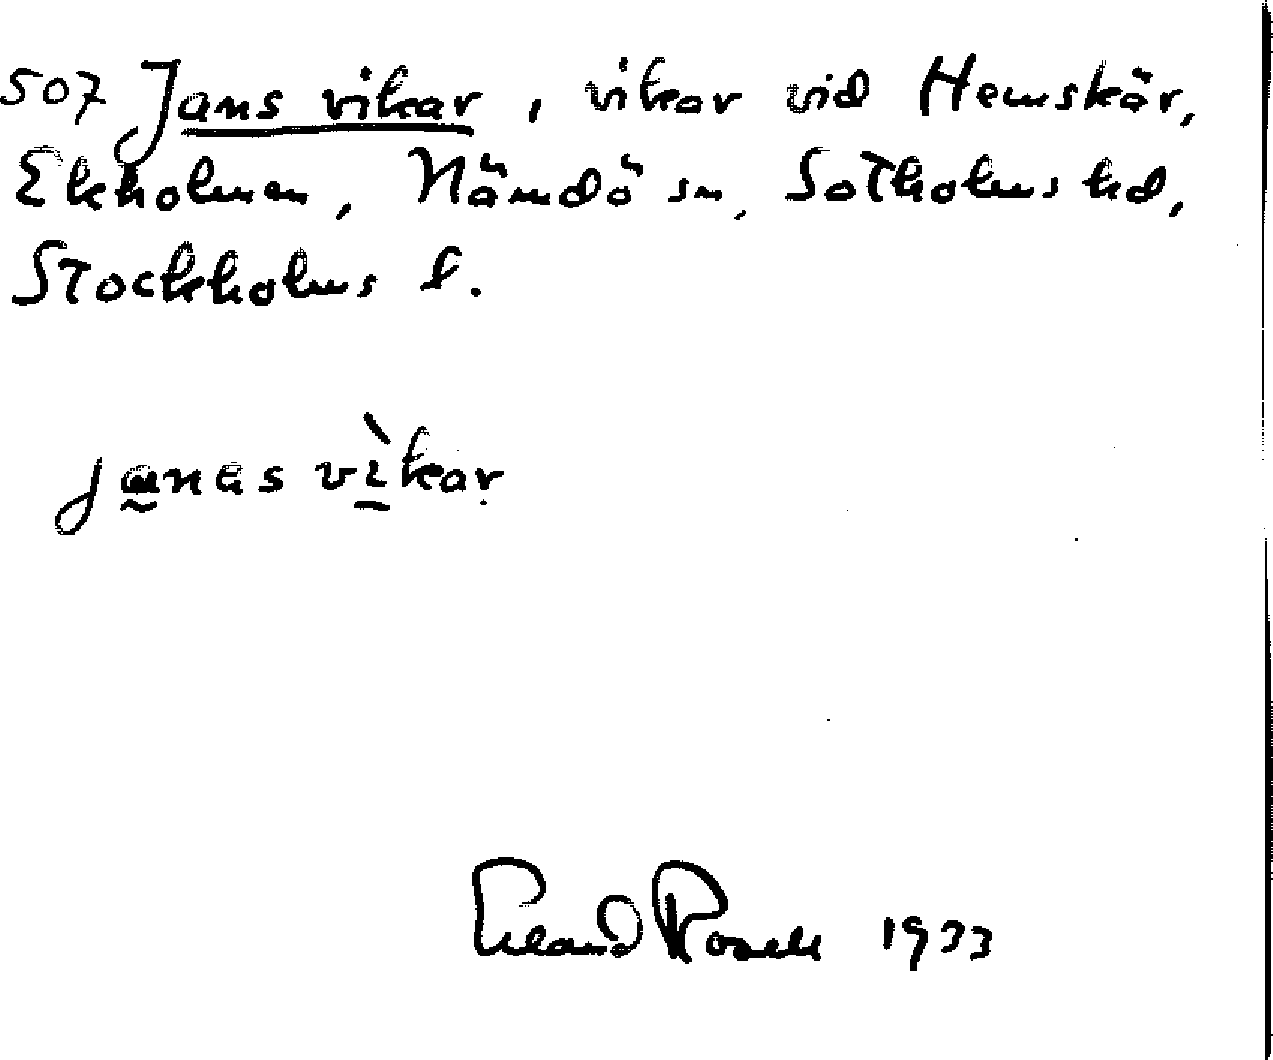 507 Jans vikar, vikar vid Hemskär,
Ekholmen, Nämdö sn, Sotholms hd,
Stockholms l.
janas vìkar
Erland Rosell 1973